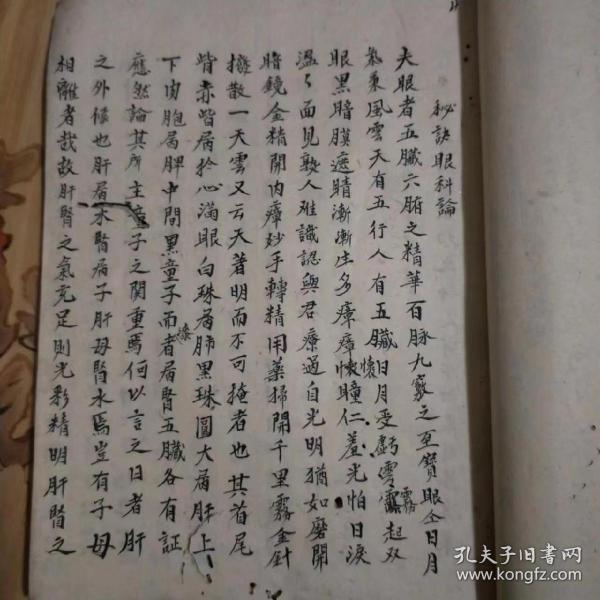 秘訣眼科論
夫眼者五臟六腑之精華百脉九竅之至寶眼仝日月
氣秉風雲天有五行人有五臟日月受虧雲霧起双
眼黑暗膜遮睛漸漸生多瘴瘴懷瞳仁羞光怕日淚
溫々面見熟人难識認與君療過自光明猶如磨開
暗鏡金精開内瘴妙手轉精用藥掃開千里霧金針
撥散一天雲又云天著明而不可掩者也其首尾
皆赤眥屬扵心滿眼白珠屬肺黑珠圓大屬肝上
下肉胞屬脾中間黑童子而者屬腎五臟各有証
應然論其所主童子之関重焉何以言之日者肝
之外候也肝屬木腎屬子肝母腎水焉豈有子母
相離者哉故肝腎之氣充足則光彩精明肝腎之
孔夫子旧书网
www.kongfz.com